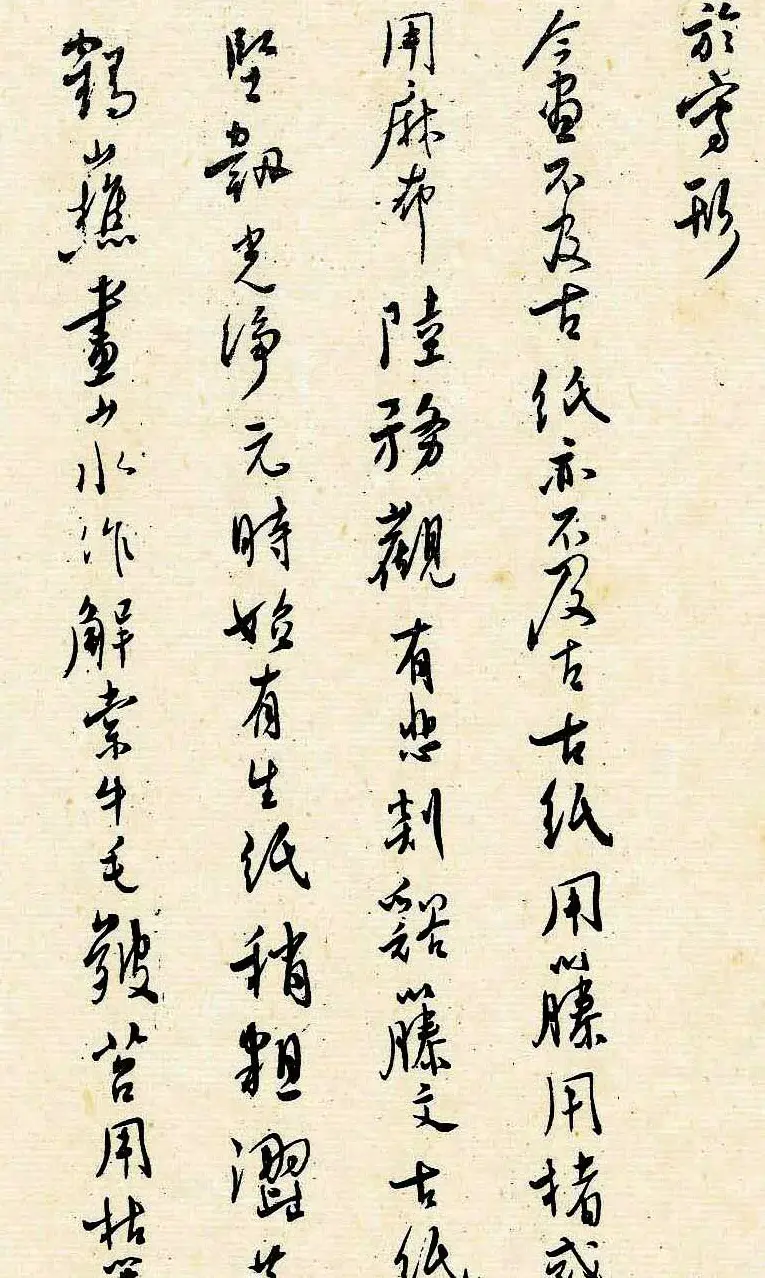 於寫形
今畫不及古紙亦不及古古紙用籐用楮或
用麻布陸務觀有悲剡谿籐文古紙
堅韌光淨元時始有生紙稍粗澀黃
鶴山樵畫山水作解索牛毛皴苔用枯筆